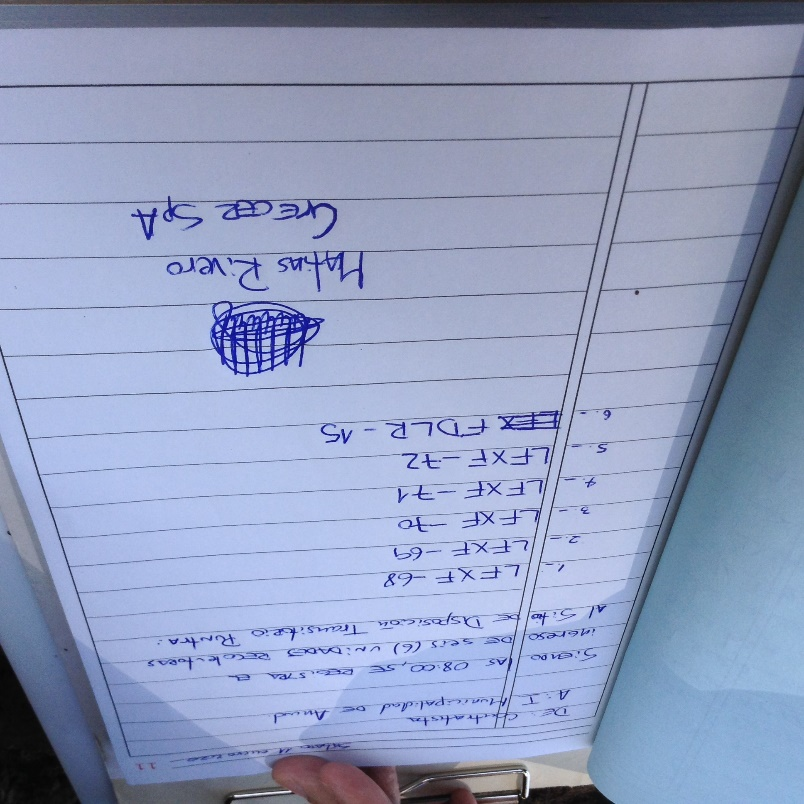 11
De Contratista
A: I Municipalidad de Ancud
Siendo las 08:00, se registra el
ingreso de seis (6) unidades recolectoras
al Sitio de Disposición Transitorio Puntra:
1.- LFXF-68
2.- LFXF-69
3.- LFXF-70
4.- LFXF-71
5.- LFXF-72
6.- FDLR-15
Matias Rivero
SpA